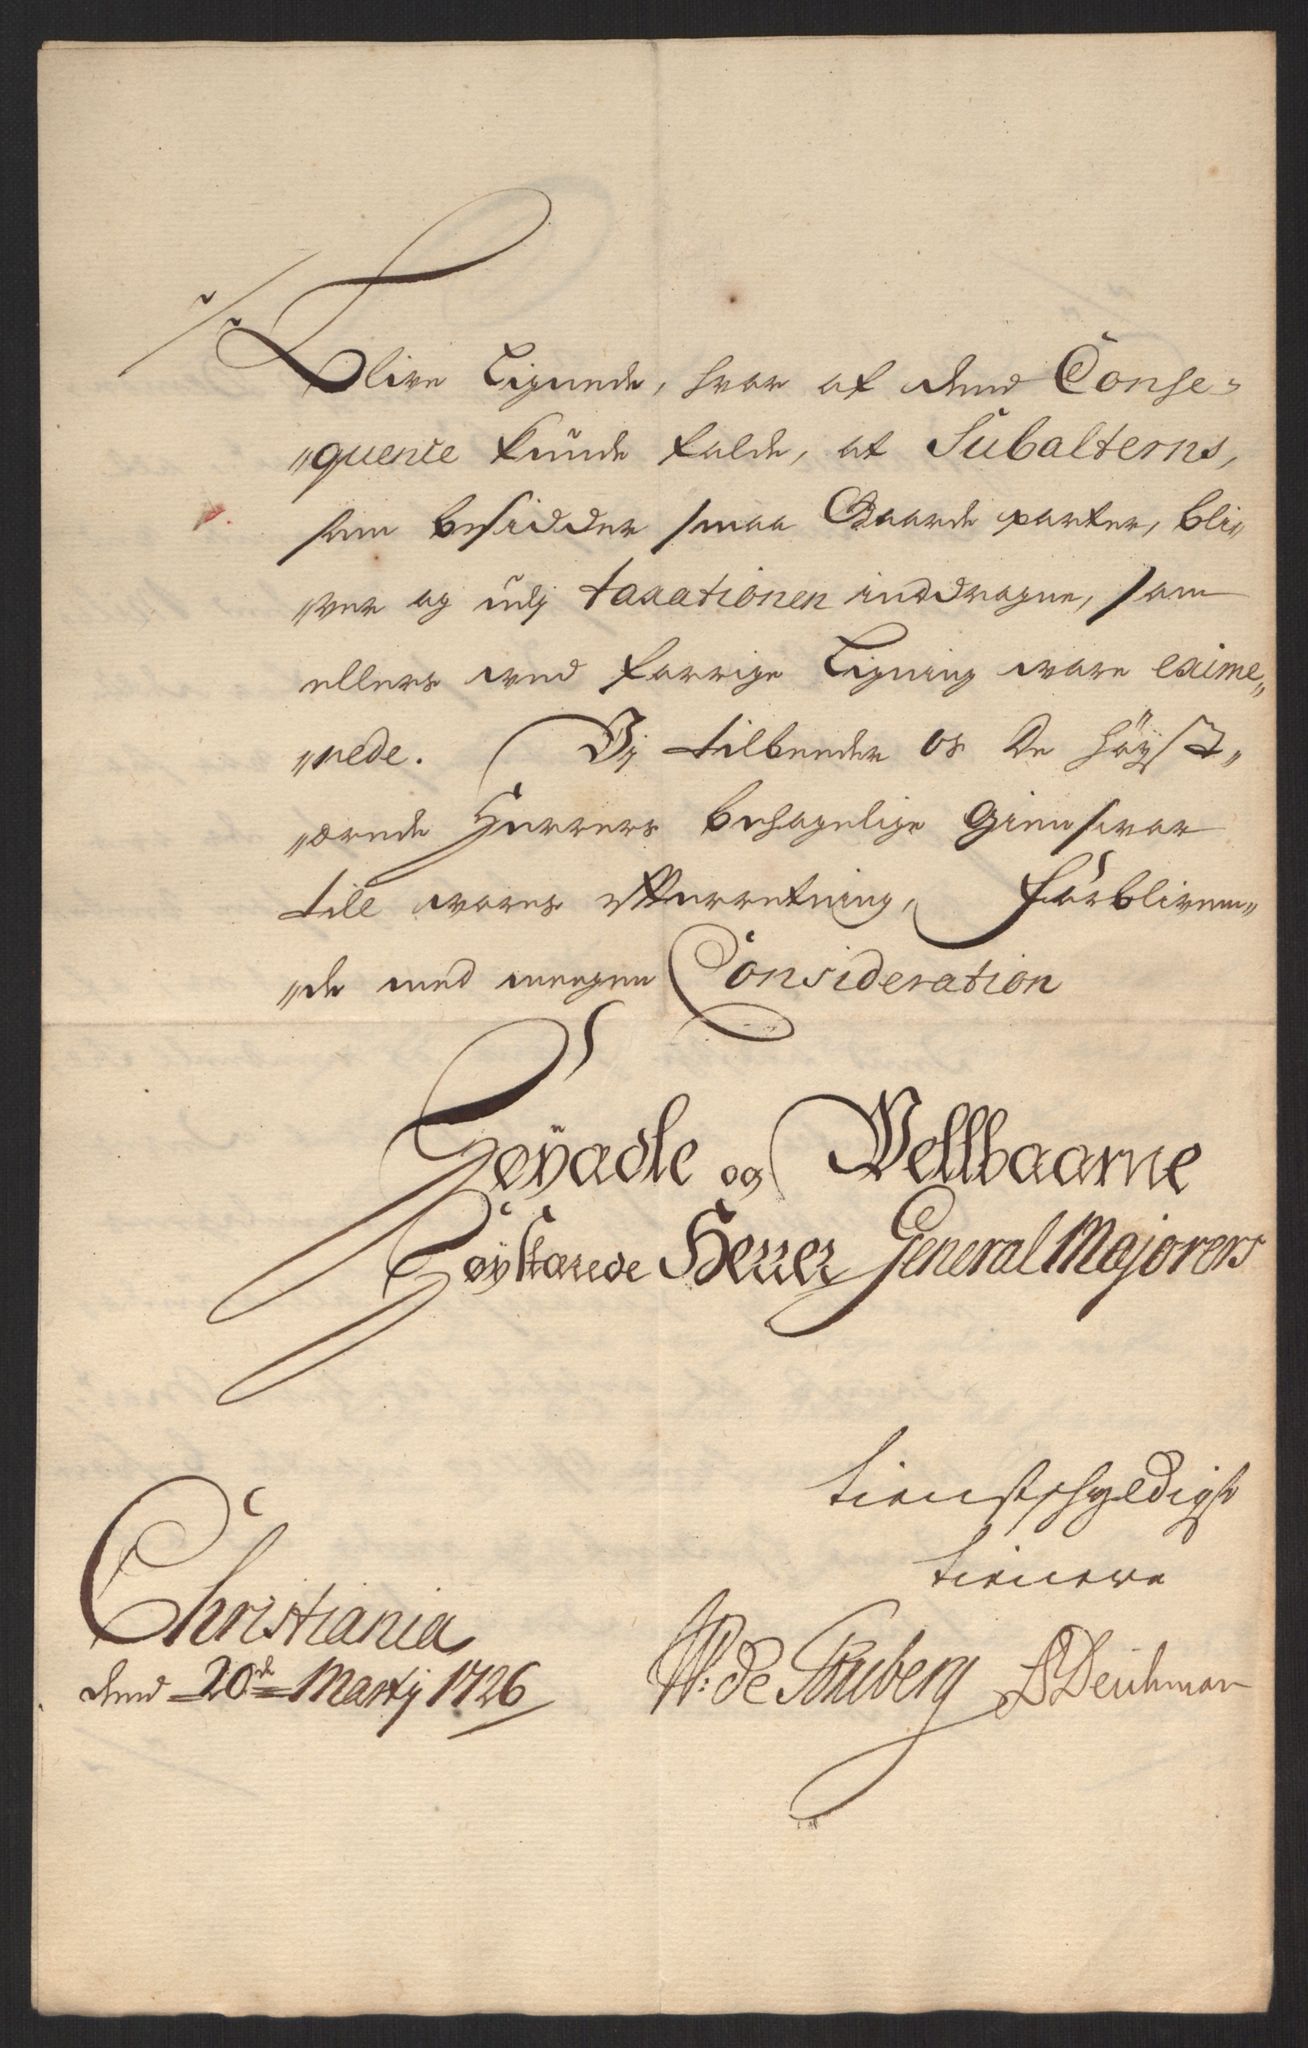 blive Lignede, hvor af dend Conse-
quence kunde falde, at Subalterns,
som besidder smaa Gaarde parter, bli-
ver og udj taxationen inddragne, som
ellers ved forrige Ligning vare exime-
rede. Vj tilbeeder os De höyst-
ærede Herrers behagelige giensvar
till vores efterretning, forbliven-
de med megen Consideration
Høyædle og Vellbaarne
Høystærede Herrer General Majorers
tienstskyldigste
tienere
Christiania
dend 20de Martij 1726
W: de Stuberg BDeichman